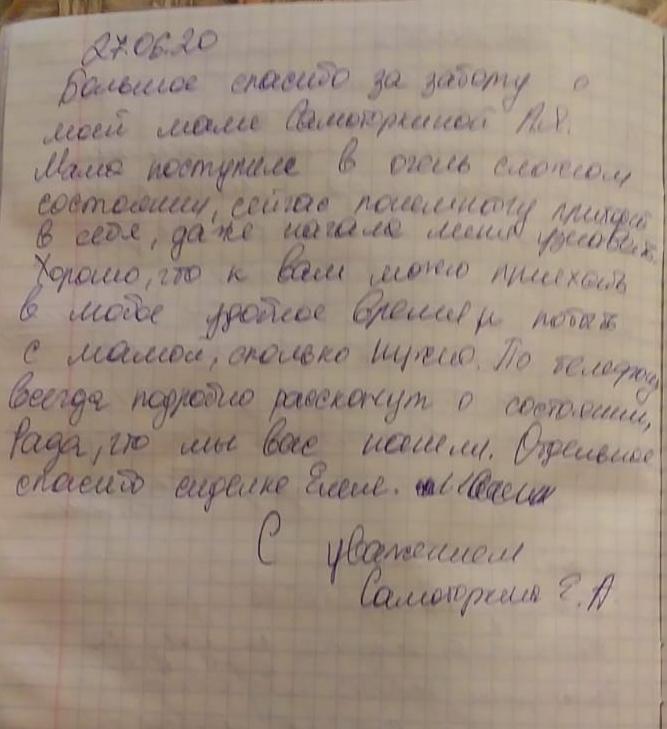 27.06.20
Большое спасибо за заботу о
моей маме Самоторкиной А.Я.
Мама поступила в очень сложном
состоянии, сейчас понемногу приходит
в себя, даже начала меня узнавать.
Хорошо, что к вам можно приехать
в любое удобное время и побыть
с мамой, сколько нужно. По телефону
всегда подробно расскажут о состоянии,
Рада, что мы вас нашли. Отдельное
спасибо сиделке Елене.
С уважением
Самоторкина Е.А